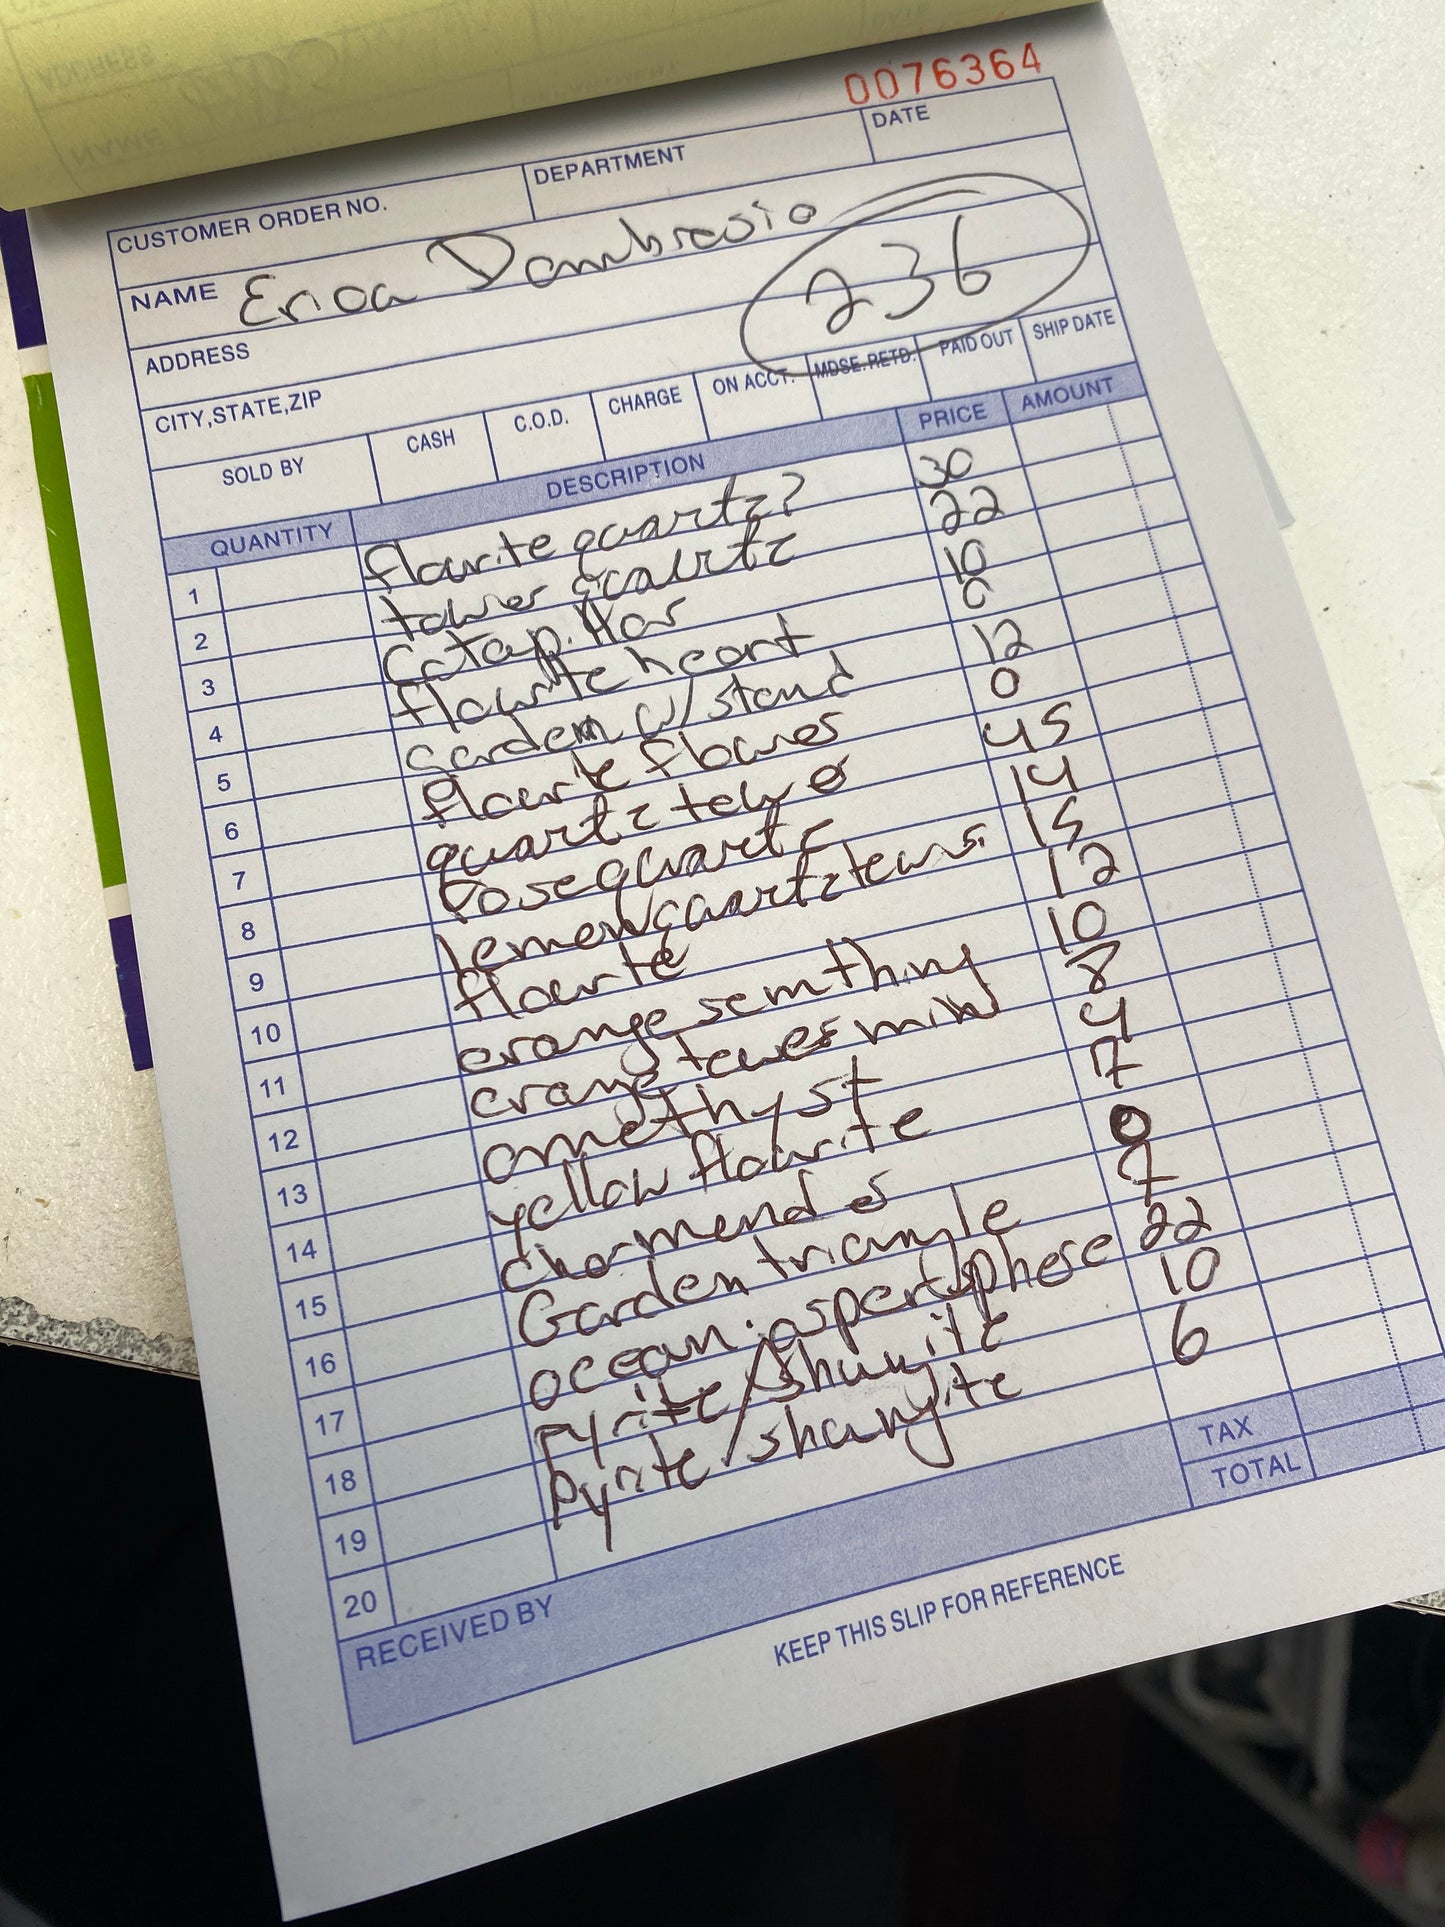 0076364
CUSTOMER ORDER NO. DEPARTMENT DATE
NAME Erica Dambrosio
236
ADDRESS
CITY,STATE,ZIP
SOLD BY CASH C.O.D. CHARGE ON ACCT. MDSE. RETD. PAID OUT SHIP DATE
QUANTITY DESCRIPTION PRICE AMOUNT
1 flourite quartz? 30
2 tower quartz 22
3 10
4 flourite heart 0
5 garden w/stand 12
6 flourite flower 0
7 quartz 45
8 rose quartz 14
9 lemon quartz tower 15
10 flourite 12
11 orange somthing 10
12 orange tower mini 8
13 amethyst 4
14 yellow flourite 7
15 charmander 0
16 Garden triangle 7
17 ocean jasper sphere 22
18 pyrite/shungite 10
19 pyrite/shungite 6
20
TAX
TOTAL
RECEIVED BY
KEEP THIS SLIP FOR REFERENCE